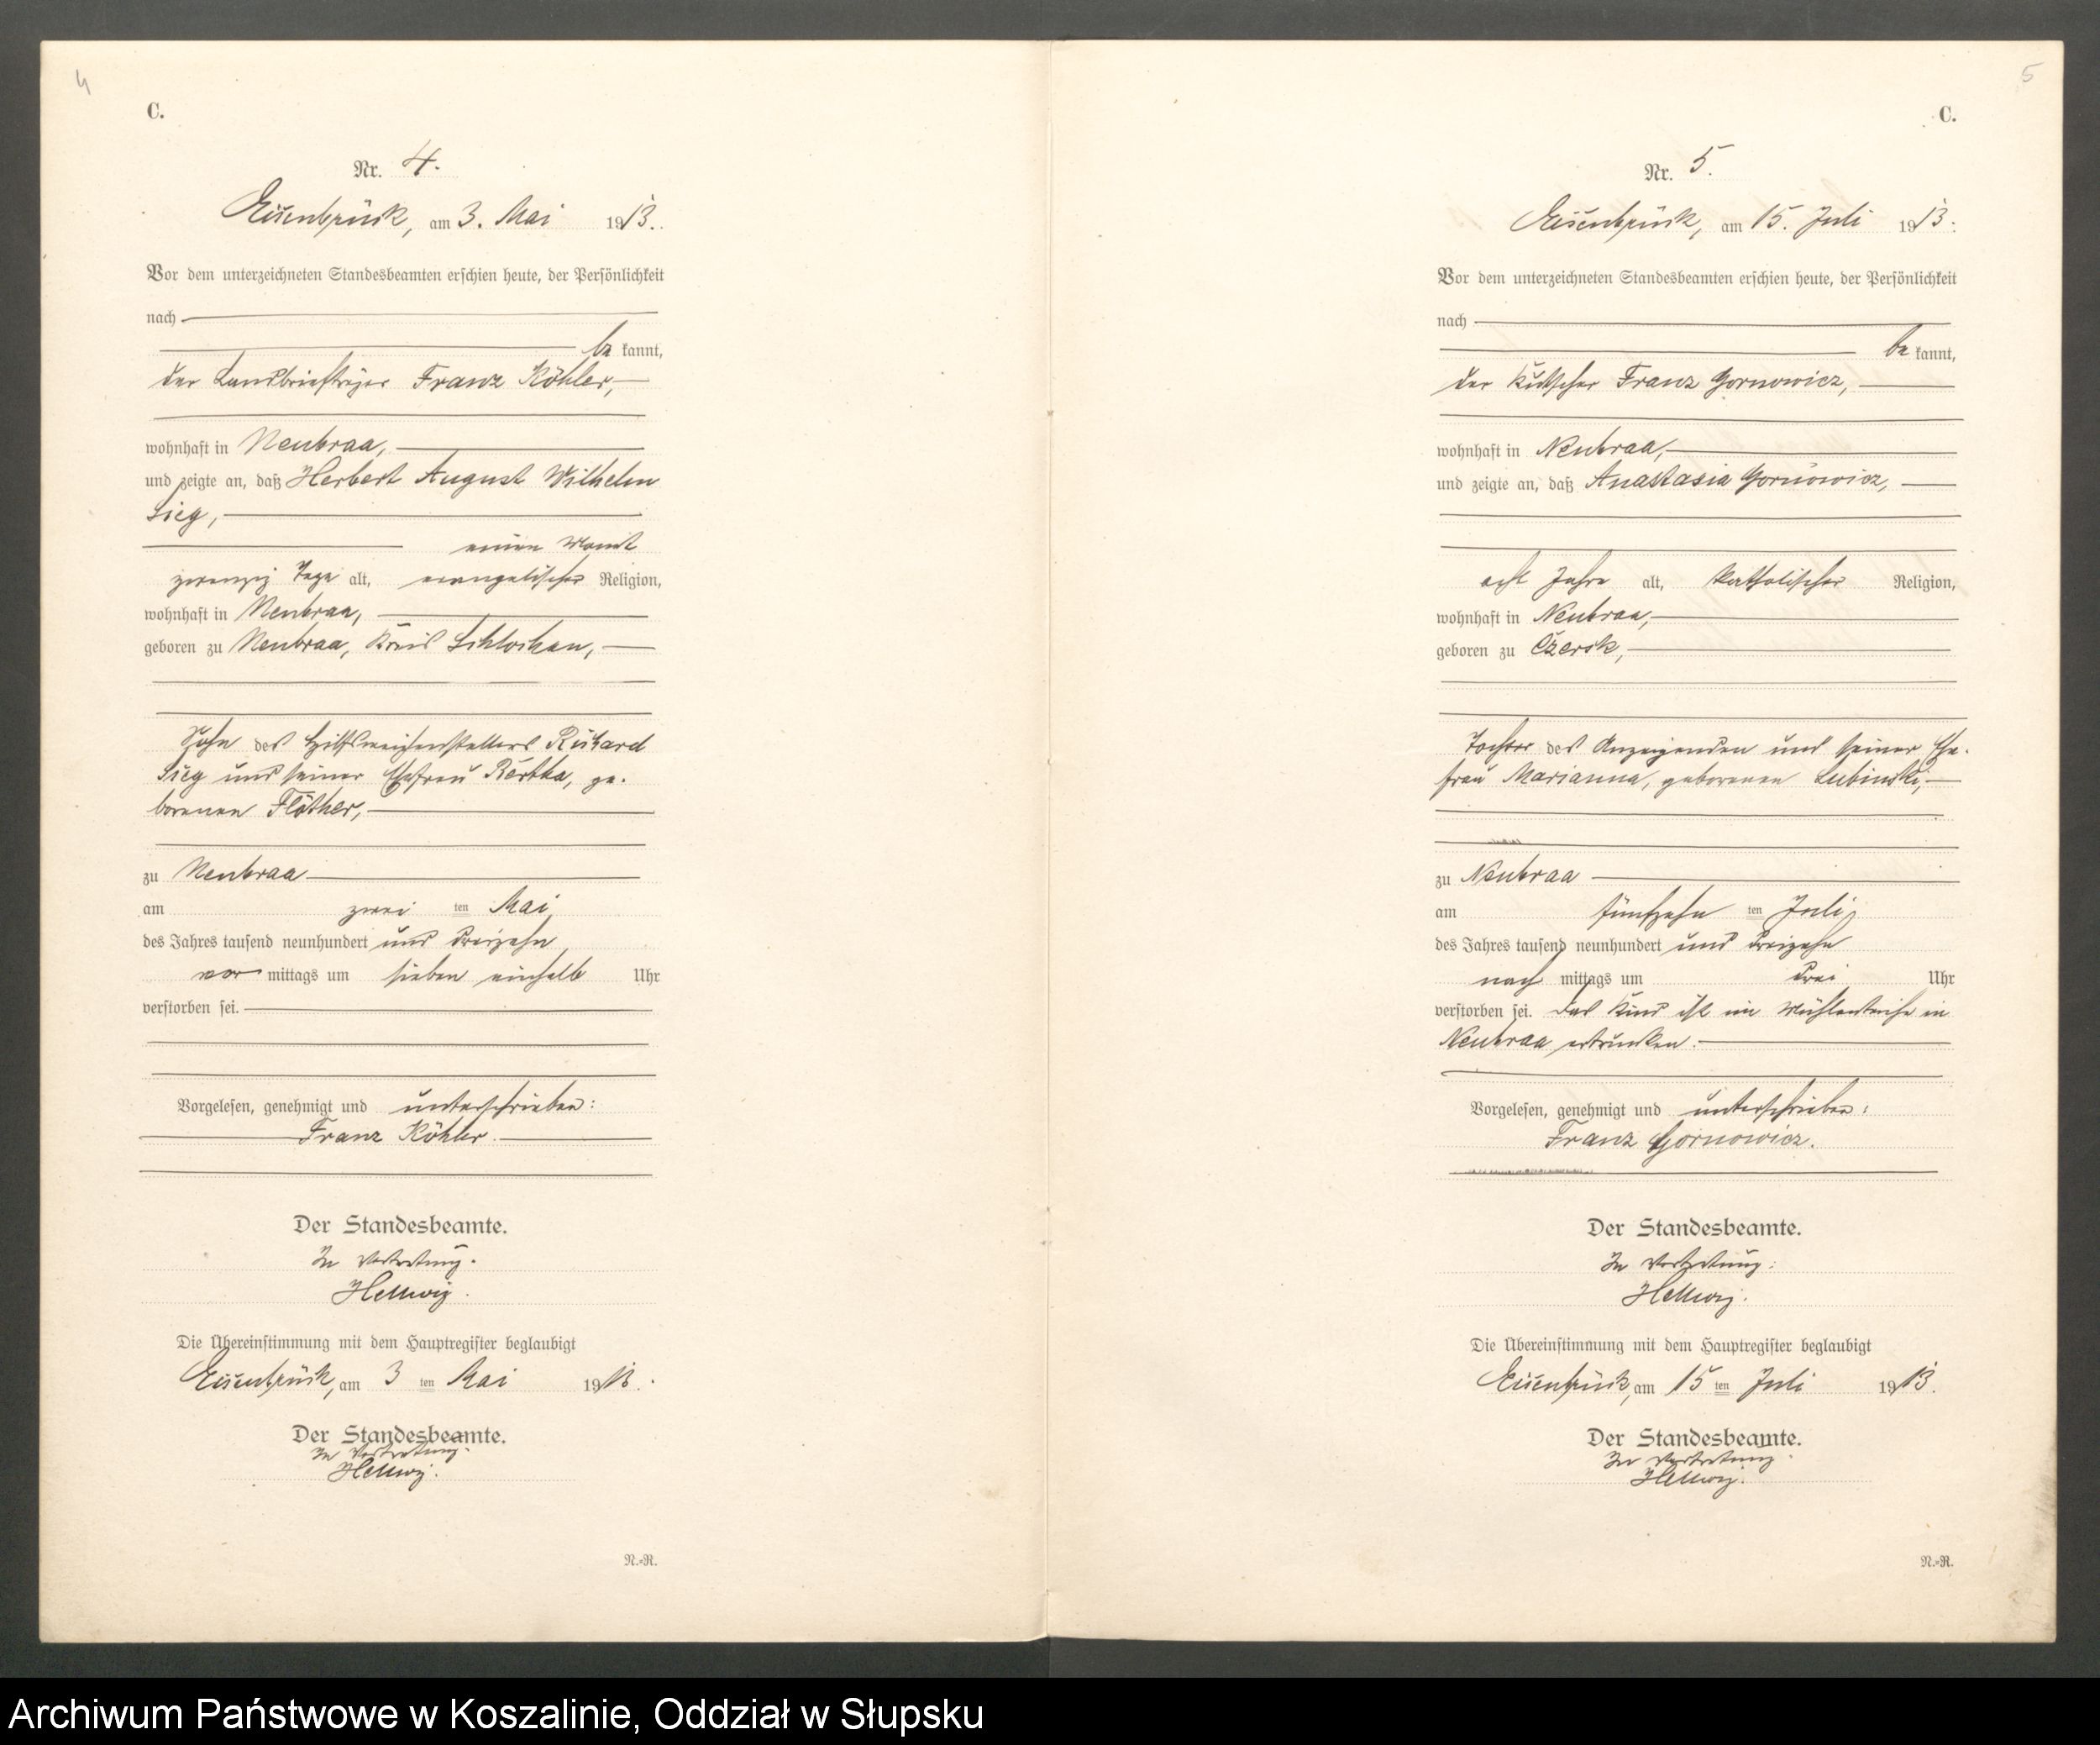 4
C.
Nr. 4.
Eisenbrück, am 3. Mai 1913.
Vor dem unterzeichneten Standesbeamten erschien heute, der Persönlichkeit
nach
be kannt,
der Landbriefträger Franz Köhler,
wohnhaft in Neubraa,
und zeigte an, daß Herbert August Wilhelm
Sieg,
einen Monat
zwanzig Tage alt, evangelischer Religion,
wohnhaft in Neubraa,
geboren zu Neubraa, Kreis Schlochau,
Sohn des Hilfsweichenstellers Richard
Sieg und seiner Ehefrau Bertha, ge-
borenen Flöther,
zu Neubraa
am zwei ten Mai
des Jahres tausend neunhundert und dreizehn
vor mittags um sieben einhalb Uhr
verstorben sei.
Vorgelesen, genehmigt und unterschrieben:
Franz Köhler.
Der Standesbeamte.
In Vertretung.
Hellwig.
Die Übereinstimmung mit dem Hauptregister beglaubigt
Eisenbrück, am 3 ten Mai 1913.
Der Standesbeamte.
In Vertretung.
Hellwig.
N.-R.
5
C.
Nr. 5.
Eisenbrück, am 15. Juli 1913.
Vor dem unterzeichneten Standesbeamten erschien heute, der Persönlichkeit
nach
be kannt,
der Kutscher Franz Gornowicz,
wohnhaft in Neubraa,
und zeigte an, daß Anastasia Gornowicz,
acht Jahre alt, katholischer Religion,
wohnhaft in Neubraa,
geboren zu Czersk,
Tochter des Anzeigenden und seiner Ehe-
frau Marianna, geborenen Lubinski,
zu Neubraa
am fünfzehn ten Juli
des Jahres tausend neunhundert und dreizehn
nach mittags um drei Uhr
verstorben sei. Das Kind ist im Mühlenteiche in
Neubraa ertrunken.
Vorgelesen, genehmigt und unterschrieben:
Franz Gornowicz.
Der Standesbeamte.
In Vertretung:
Hellwig.
Die Übereinstimmung mit dem Hauptregister beglaubigt
Eisenbrück, am 15 ten Juli 1913.
Der Standesbeamte.
In Vertretung.
Hellwig.
N.-R.
Archiwum Państwowe w Koszalinie, Oddział w Słupsku